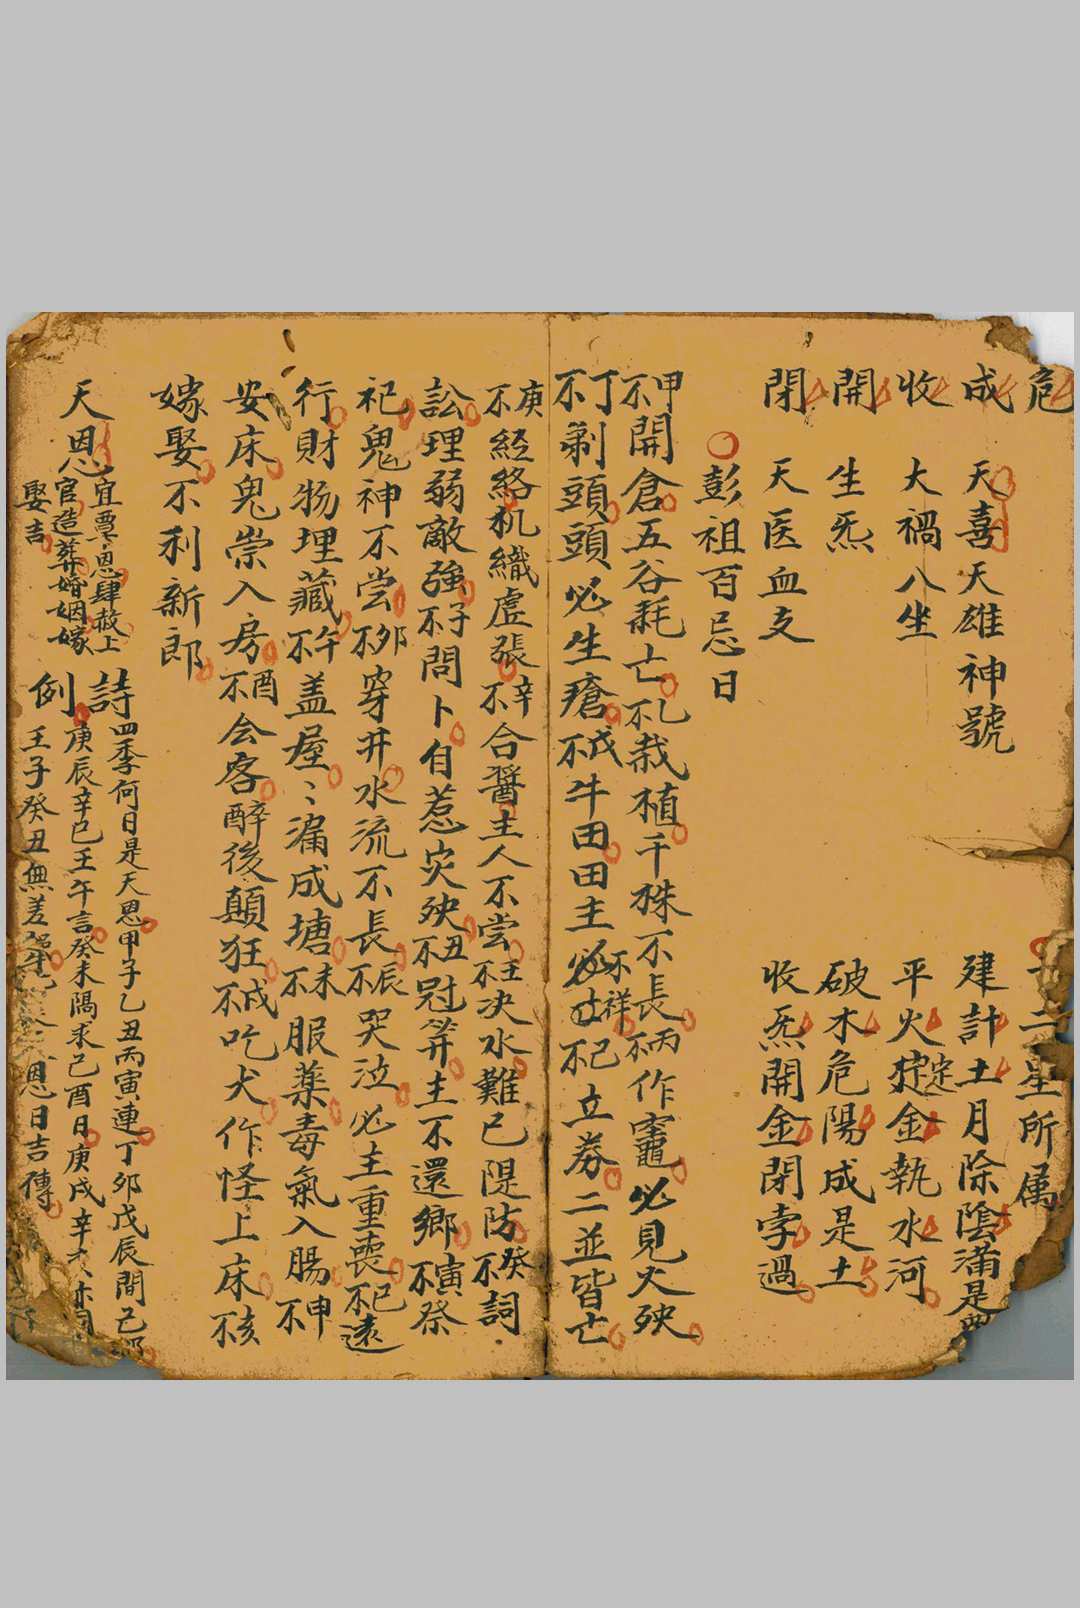 危
成 天喜天雄神號
收 大禍八坐
開 生炁
閉 天医血支
二星所属
建計土月除陰滿是
平火定金執水河
破木危陽成是土
收炁開金閉孛過
彭祖百忌日
甲不開倉五谷耗亡乙不栽植千株不長丙不作竈必見火殃
丁不剃頭頭必生瘡戊不牛田田主不祥己不立券二並皆亡
庚不経絡机織虛張辛不合醬主人不尝壬不决水難已隄防癸不詞
訟理弱敵強子不問卜自惹灾殃丑不冠笄主不還鄉寅不祭
祀鬼神不尝卯不穿井水流不長辰不哭泣必主重喪巳不遠
行財物埋藏午不盖屋〻漏成塘未不服薬毒氣入腸申不
安床鬼祟入房酉不会客醉後顛狂戌不吃犬作怪上床亥不
嫁娶不利新郎
天恩
宜覃恩肆赦上
官造葬婚姻嫁
娶吉
詩
例
四季何日是天恩甲子乙丑丙寅連丁卯戊辰間己卯
庚辰辛巳壬午言癸未隔求己酉日庚戌辛亥亦同
壬子癸丑無差 恩日吉傳